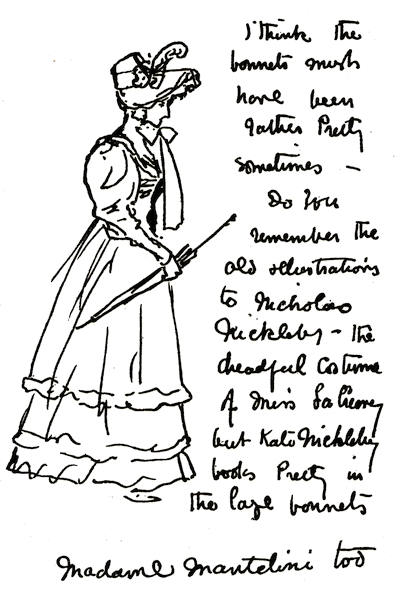 I think the
bonnets must
have been
rather Pretty
sometimes –
Do you
remember the
old illustrations
to Nicholas
Nickleby – the
dreadful Costume
of Miss La Creevy
but Kate Nickleby
looks Pretty in
the large bonnets
Madame Mantelini too